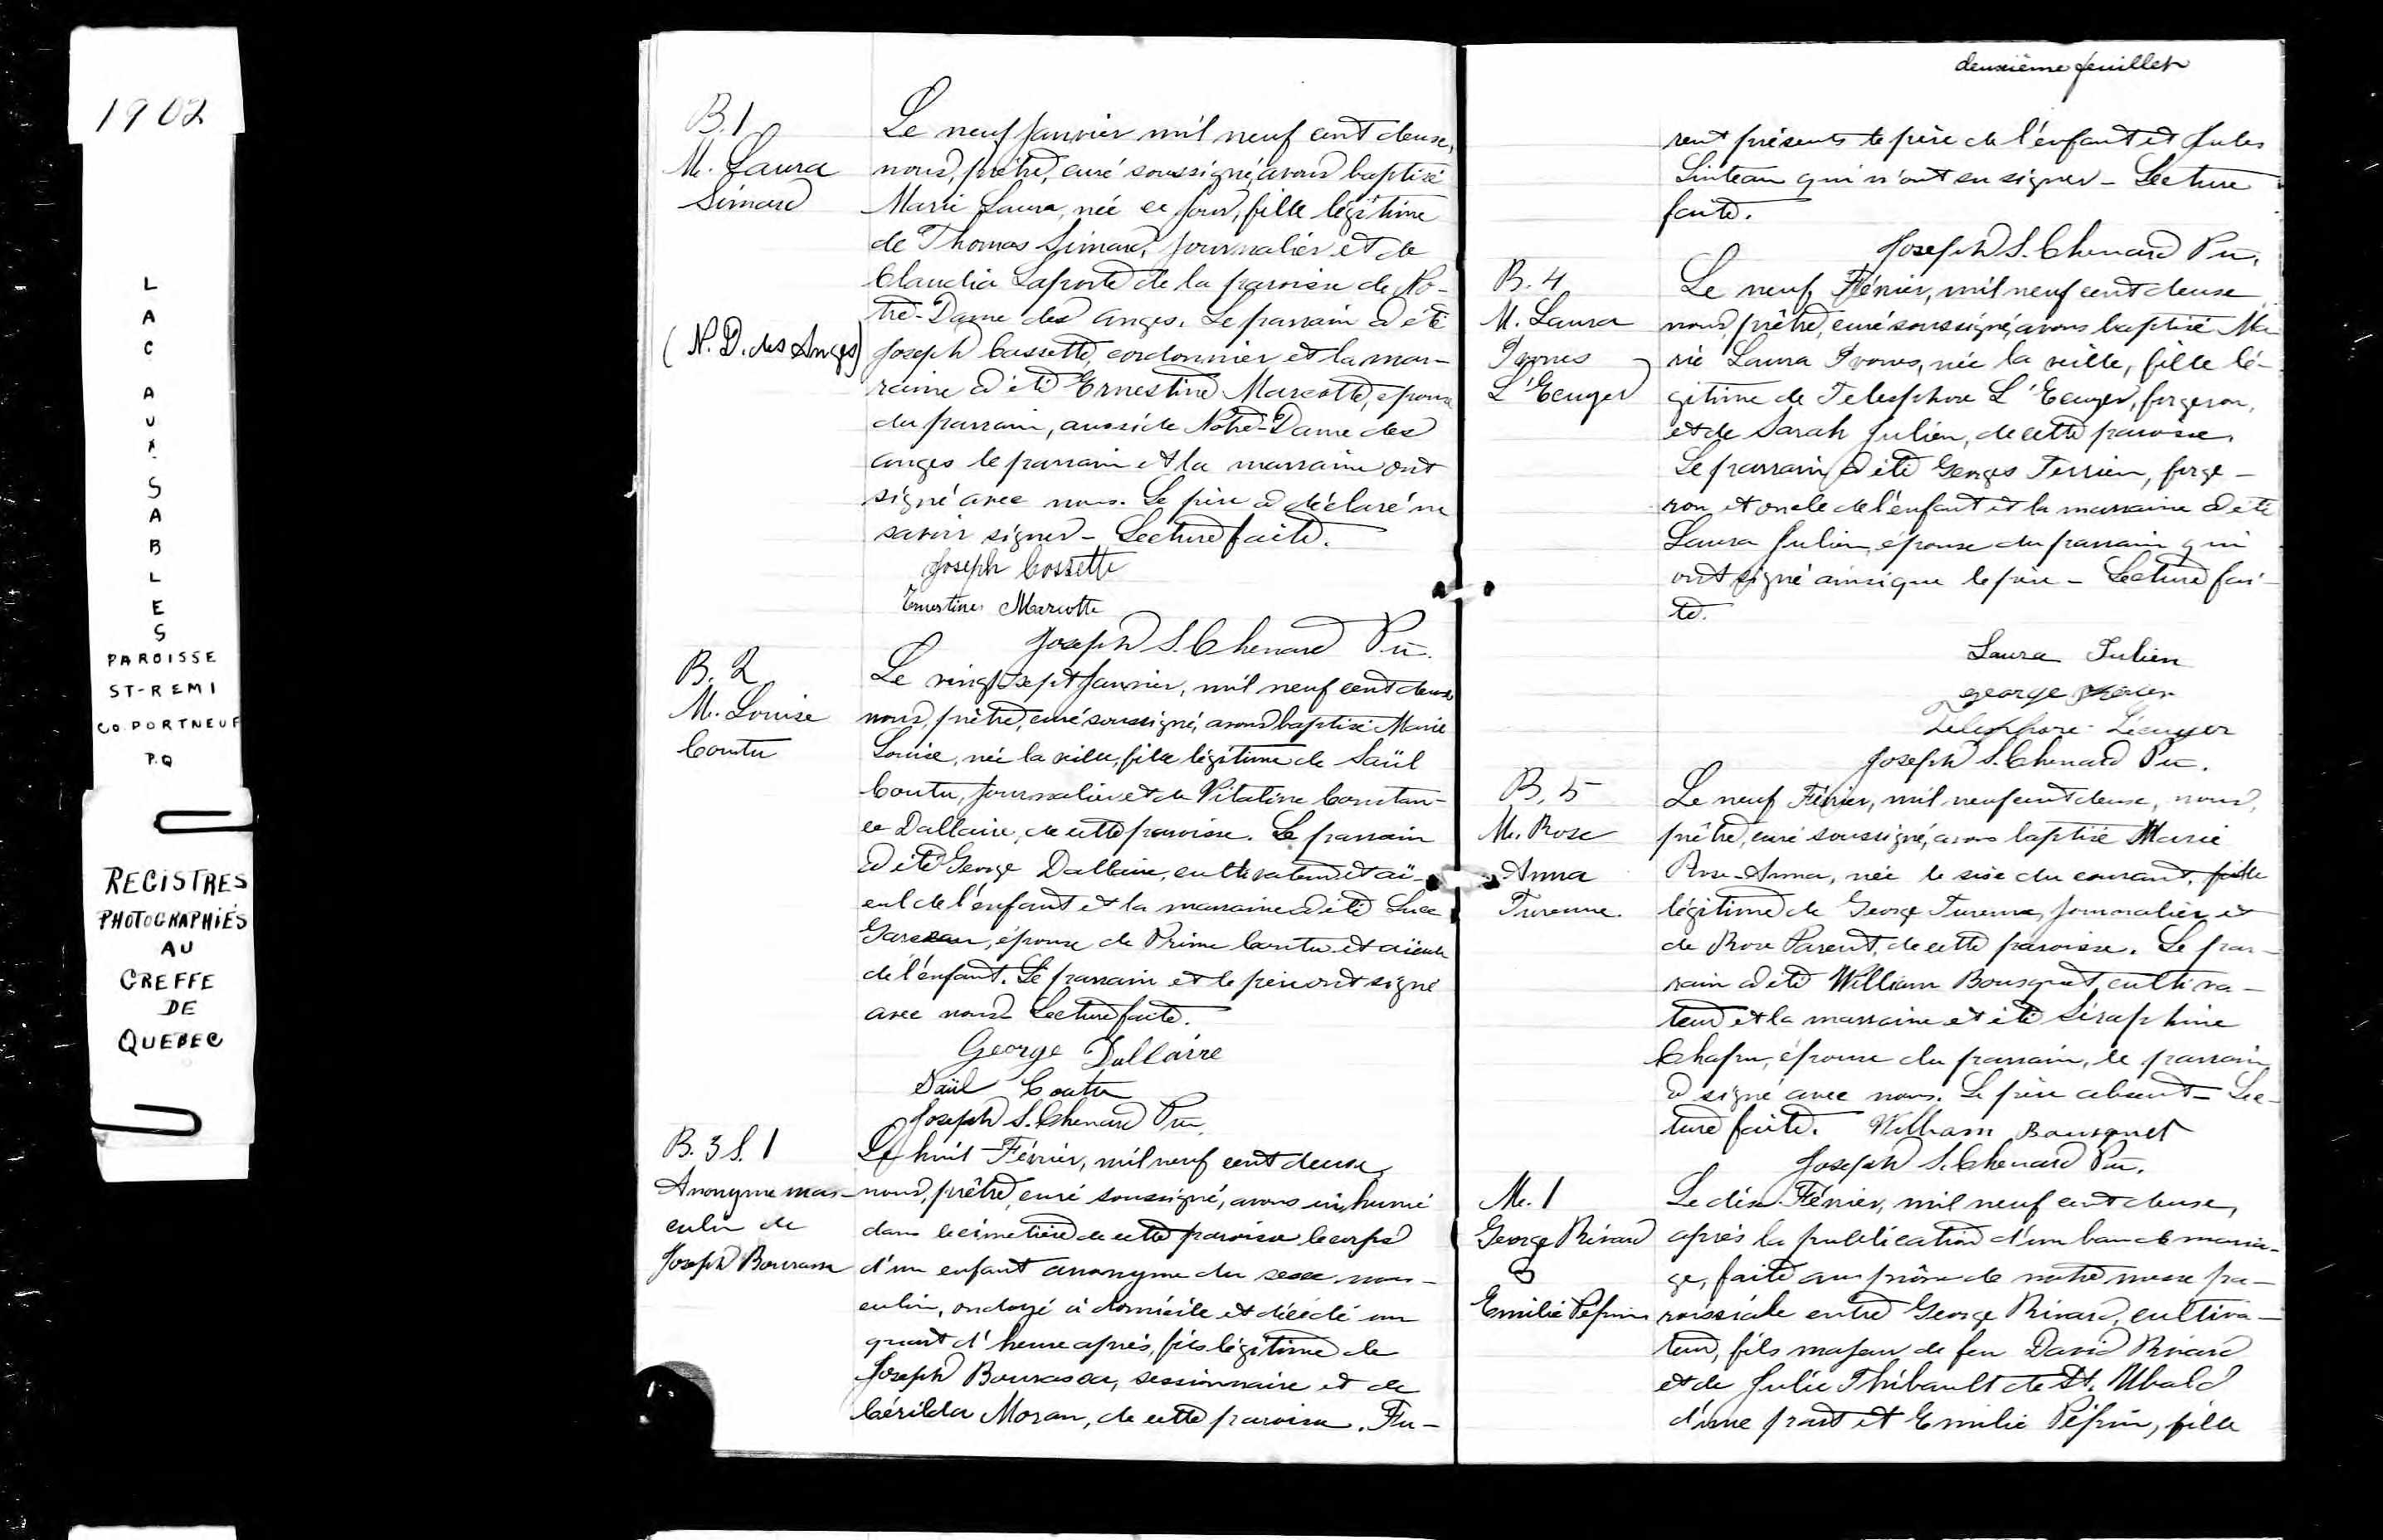 1902
LAC AUX SABLES
PAROISSE
ST-REMI
CO. PORTNEUF
P.Q
REGISTRES
PHOTOGRAPHIÉS
AU
GREFFE
DE
QUEBEC
B.1
M. Laura
Simard
(N. D. des Anges)
Le neuf Janvier mil neuf cent deux,
nous, prêtre, curé soussigné, avons baptisé
Marie Laura, née ce jour, fille légitime
de Thomas Simard, journalier et de
Claudia Laporte de la paroisse de No-
tre-Dame des Anges. Le parrain a été
Joseph Cossette, cordonnier et la mar-
raine a été Ernestine Marcotte, épouse
du parrain, aussi de Notre-Dame des
Anges le parrain et la marraine ont
signé avec nous. Le père a déclaré ne
savoir signer - Lecture faite.
Joseph Cossette
Ernestine Marcotte
Joseph S. Chenard Ptre.
B. 2
M. Louise
Coutu
Le vingt sept Janvier, mil neuf cent deux
nous, prêtre, curé soussigné, avons baptisé Marie
Louise, née la veille, fille légitime de Saül
Coutu, journalier et de Vitaline Constan-
ce Dallaire, de cette paroisse. Le parrain
a été George Dallaire, cultivateur et aï-
eul de l'enfant et la marraine a été Luce
épouse de Prime Coutu et aïeule
de l'enfant. Le parrain et le père ont signé
avec nous - Lecture faite.
George Dallaire
Saül Coutu
Joseph S. Chenard Ptre.
B. 3 S. 1
Anonyme mas-
culin de
Joseph Bourassa
Le huit Février, mil neuf cent deux,
nous, prêtre, curé soussigné, avons inhumé
dans le cimetière de cette paroisse le corps
d'un enfant anonyme du sexe mas-
culin, ondoyé à domicile et décédé un
quart d'heure après, fils légitime de
Joseph Bourassa, sessionnaire et de
Cérilda Moran, de cette paroisse. Fu-
deuxième feuillet
rent présents le père de l'enfant et Jules
Linteau qui n'ont su signer - Lecture
faite.
Joseph S. Chenard Ptre.
B. 4
M. Laura
Yvones
L'Ecuyer
Le neuf Février, mil neuf cent deux
nous, prêtre, curé soussigné, avons baptisé Ma
rie Laura Yvones, née la veille, fille lé-
gitime de Telesphore L'Ecuyer, forgeron,
et de Sarah Julien, de cette paroisse.
Le parrain a été Georges Terrien, forge-
ron et oncle de l'enfant et la marraine a été
Laura Julien, épouse du parrain qui
ont signé ainsi que le père - Lecture fai-
te.
Laura Julien
george
Telesphore Lécuyer
Joseph S. Chenard Ptre.
B. 5
M. Rose
Anna
Turenne.
Le neuf Février, mil neuf cent deux, nous,
prêtre, curé soussigné, avons baptisé Marie
Rose-Anna, née le six du courant, fille
légitime de George Turenne, journalier et
de Rose Parent, de cette paroisse. Le par-
rain a été William Bousquet, cultiva-
teur et la marraine et été Séraphine
Chapu, épouse du parrain, le parrain
a signé avec nous. Le père absent - Lec-
ture faite. William Bousquet
Joseph S. Chenard Ptre.
M. 1
George Rivard
&
Emilie Pépin
Le dix Février, mil neuf cent deux,
après la publication d'un ban de maria-
ge, faite au prône de notre messe pa-
roissiale entre George Rivard, cultiva-
teur, fils majeur de feu David Rivard
et de Julie Thibault de St. Ubald
d'une part et Emilie Pépin, fille